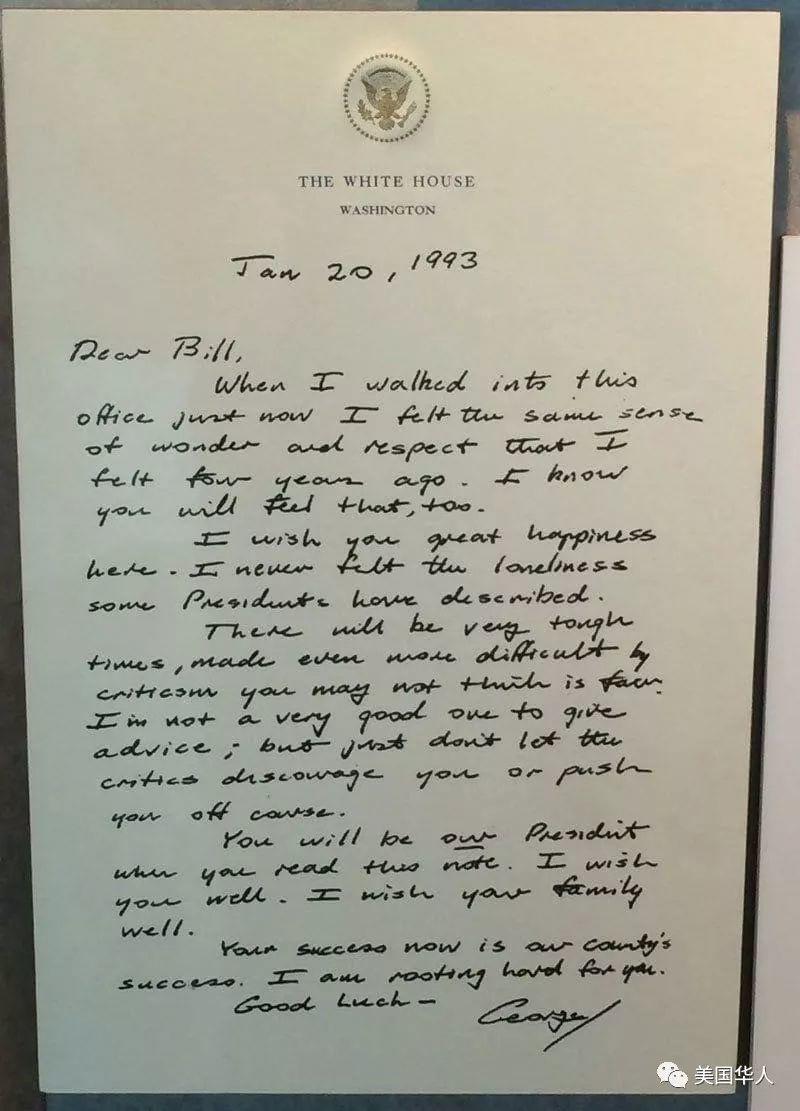 THE WHITE HOUSE
WASHINGTON
Jan 20, 1993
Dear Bill,
When I walked into this
office just now I felt the same sense
of wonder and respect that I
felt four years ago. I know
you will feel that, too.
I wish you great happiness
here. I never felt the loneliness
some Presidents have described.
There will be very tough
times, made even more difficult by
criticism you may not think is fair.
I'm not a very good one to give
advice; but just don't let the
critics discourage you or push
you off course.
You will be our President
when you read this note. I wish
you well. I wish your family
well.
Your success now is our county's
success. I am rooting hard for you.
Good Luck —
George
美国华人